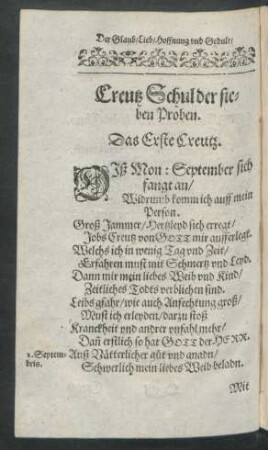 Der Glaub/Lieb/Hoffnung vnd Gedult/
Creutz Schul der sie-
ben Proben.
Das Erste Creutz.
DIß Mon: September sich
fangt an/
Widrumb komm ich auff mein
Person.
Groß Jammer/Hertzleyd sich erregt/
Jobs Creutz von GOTT mir aufferlegt.
Welchs ich in wenig Tag vnd Zeit/
Erfahren must mit Schmertz vnd Leyd.
Dann mir mein liebes Weib vnd Kind/
Zeitliches Todts verblichen sind.
Leibs gfahr/wie auch Anfechtung groß/
Must ich erleyden/darzu stoß
Kranckheit vnd andrer vnfahl mehr/
Dañ erstlich so hat GOTT der HERR.
1. Septem- Auß Vätterlicher güt vnd gnadn/
bris. Schwerlich mein liebes Weib beladn.
Mit